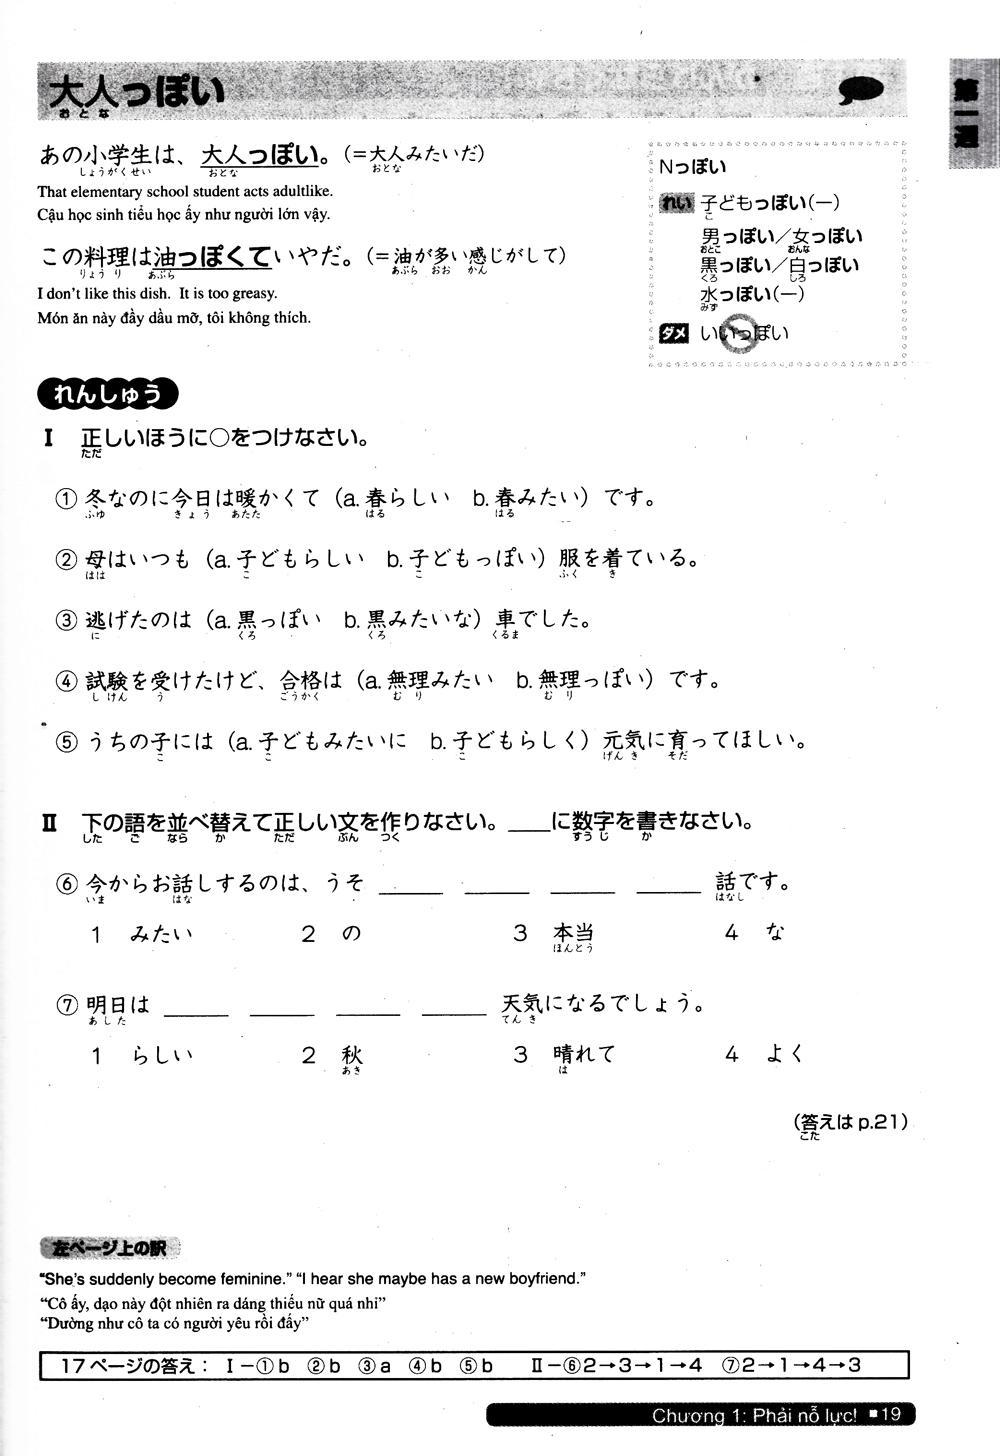 大人っぽい
おとな
第一週
あの小学生は、大人っぽい。(＝大人みたいだ)
しょうがくせい おとな おとな
That elementary school student acts adultlike.
Cậu học sinh tiểu học ấy như người lớn vậy.
この料理は油っぽくていやだ。(＝油が多い感じがして)
りょうり あぶら あぶら おお かん
I don't like this dish. It is too greasy.
Món ăn này đầy dầu mỡ, tôi không thích.
Nっぽい
れい 子どもっぽい(ー)
こ
男っぽい／女っぽい
おとこ おんな
黒っぽい／白っぽい
くろ しろ
水っぽい(ー)
みず
ダメ いいっぽい
れんしゅう
Ⅰ 正しいほうに○をつけなさい。
ただ
① 冬なのに今日は暖かくて（a. 春らしい b. 春みたい）です。
ふゆ きょう あたた はる はる
② 母はいつも（a. 子どもらしい b. 子どもっぽい）服を着ている。
はは こ こ ふく き
③ 逃げたのは（a. 黒っぽい b. 黒みたいな）車でした。
に くろ くろ くるま
④ 試験を受けたけど、合格は（a. 無理みたい b. 無理っぽい）です。
しけん う ごうかく むり むり
⑤ うちの子には（a. 子どもみたいに b. 子どもらしく）元気に育ってほしい。
こ こ こ げんき そだ
Ⅱ 下の語を並べ替えて正しい文を作りなさい。____に数字を書きなさい。
した ご なら か ただ ぶん つく すうじ か
⑥ 今からお話しするのは、うそ ____ ____ ____ ____ 話です。
いま はな はなし
1 みたい 2 の 3 本当 4 な
ほんとう
⑦ 明日は ____ ____ ____ ____ 天気になるでしょう。
あした てんき
1 らしい 2 秋 3 晴れて 4 よく
あき は
(答えは p.21)
こた
左ページ上の訳
"She's suddenly become feminine." "I hear she maybe has a new boyfriend."
"Cô ấy, dạo này đột nhiên ra dáng thiếu nữ quá nhỉ"
"Dường như cô ta có người yêu rồi đấy"
17ページの答え： Ⅰ－①b ②b ③a ④b ⑤b Ⅱ－⑥2→3→1→4 ⑦2→1→4→3
Chương 1: Phải nỗ lực! ■19